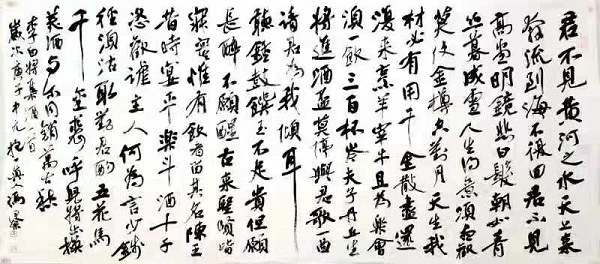 君不見黃河之水天上來
奔流到海不復回君不見
高堂明鏡悲白髮朝如青
絲暮成雪人生得意須盡歡
莫使金樽空對月天生我
材必有用千金散盡還
復來烹羊宰牛且為樂會
須一飲三百杯岑夫子丹丘生
將進酒杯莫停與君歌一曲
請君為我傾耳
聽鐘鼓饌玉不足貴但願
長醉不願醒古來聖賢皆
寂寞惟有飲者留其名陳王
昔時宴平樂斗酒十千
恣歡謔主人何為言少錢
徑須沽取對君酌五花馬
千金裘呼兒將出換
美酒與爾同銷萬古愁
李白將進酒一首
歲次庚子中元